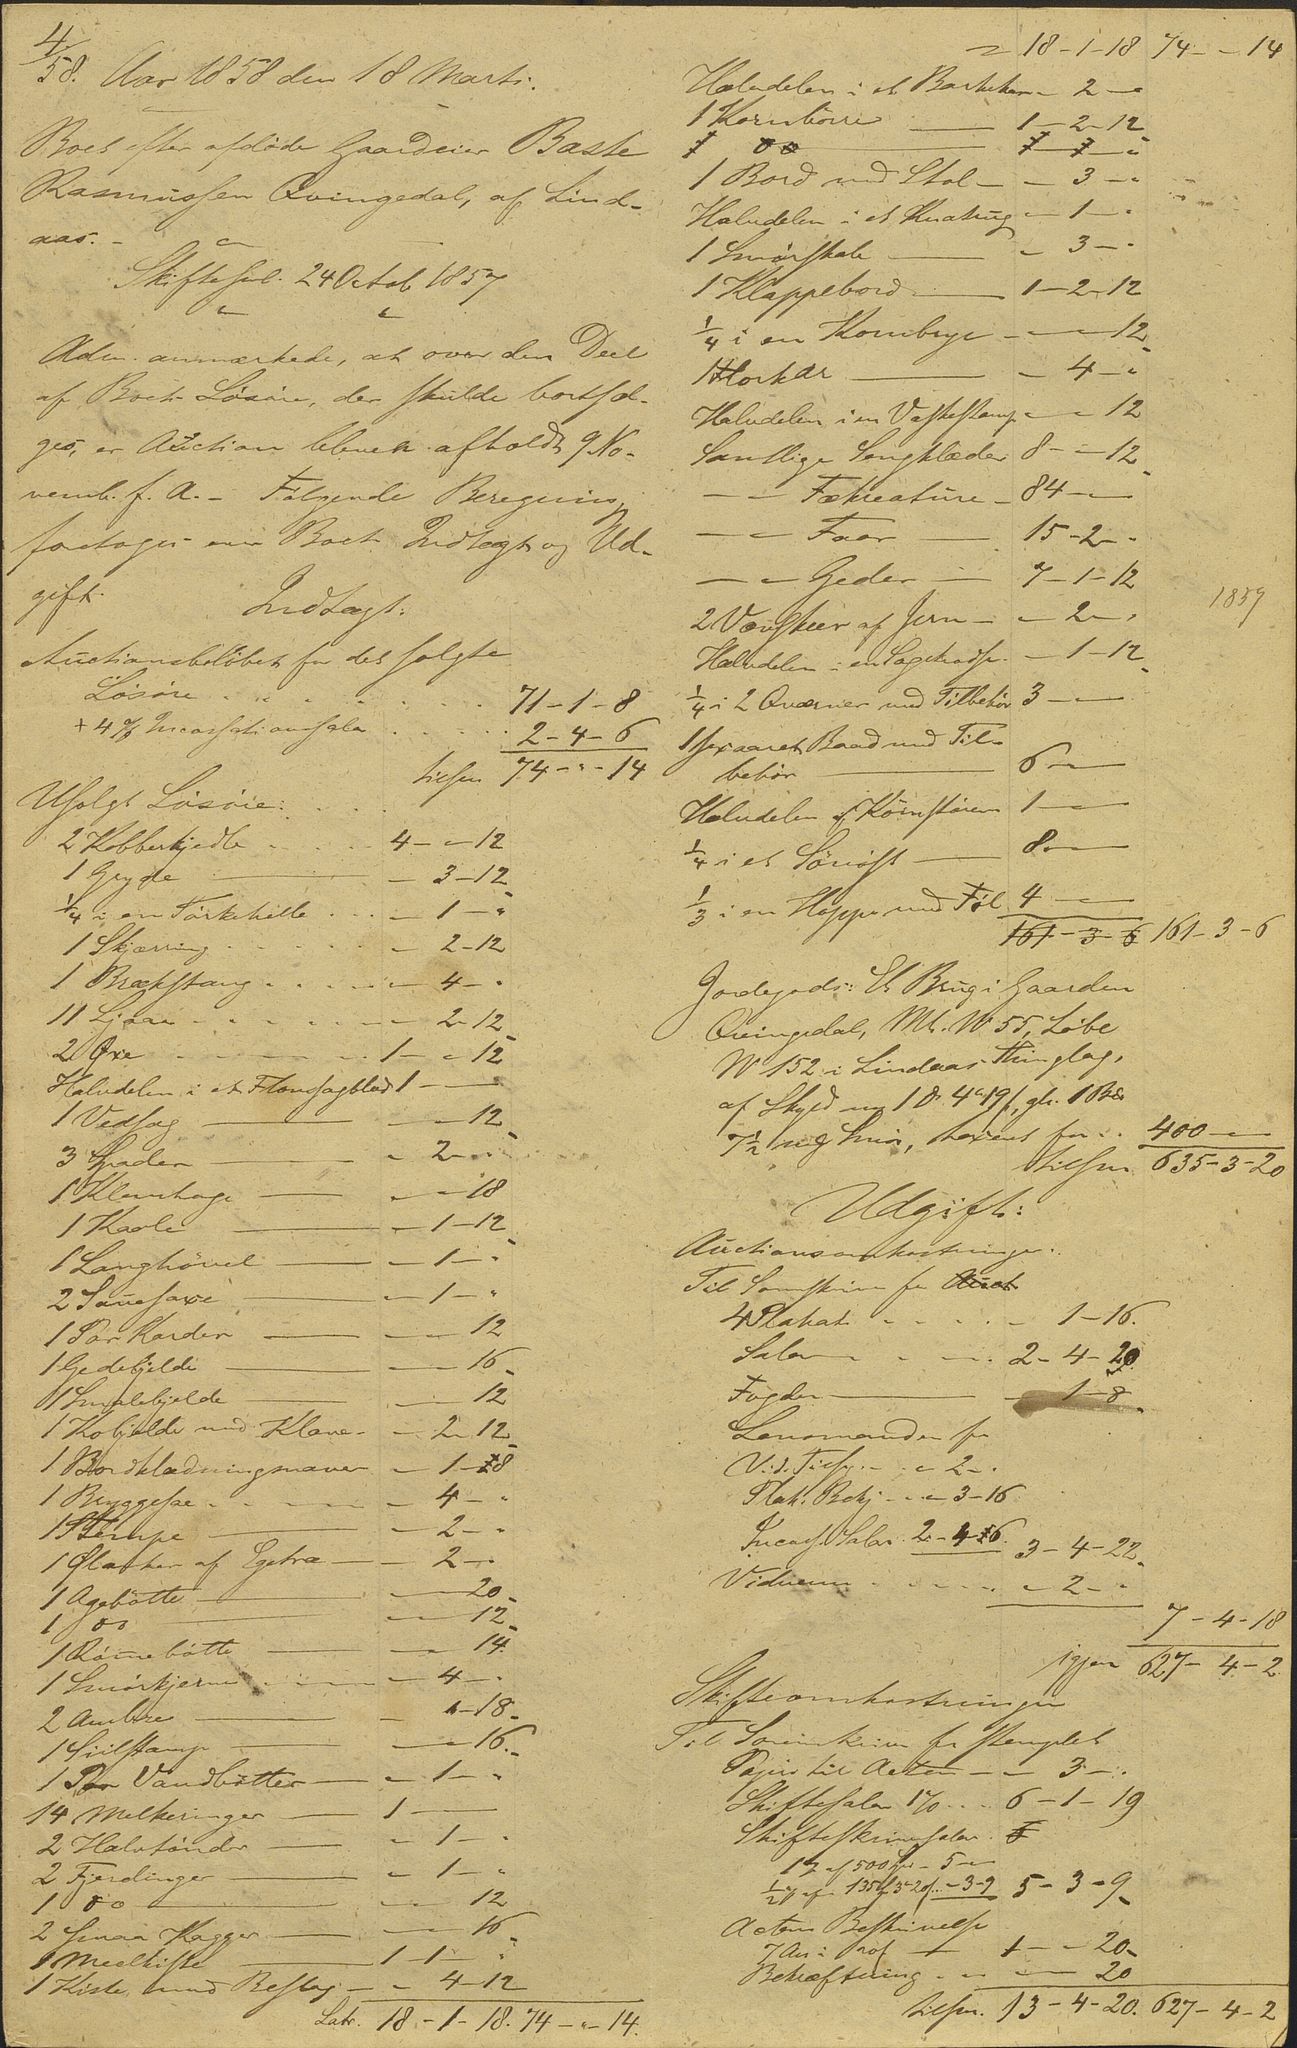 4/58. Aar 1858 den 18 Marts.
Boet efter afdøde Gaardeier Baste
Rasmussen Qvingedal, af Lind-
aas. -
Skiftesml. 24 Octob. 1857
Adm. anmærkede, at over den Deel
af Boets Løsøre, der skulde bortsæl-
ges, er Auction bleven afholdt 9 No-
vemb. f. A. - Følgende Beregning
foretoges over Boets Indtægt og Ud-
gift.
Indtægt:
Auctionsbeløbet for det solgte
Løsøre . . . . . . 71-1-8
+ 4% Incassationssalær . . . . . 2-4-6
tilsm. 74-"-14
Usolgt Løsøre: . . .
2 Kobberkjedle . . . . 4-"-12
1 Gryde - 3-12
1/4 i en Tørkehelle . . . - 1-"
1 Skjæring . . . . - 2-12
1 Brækstang . . . . - 4-"
11 Ljaae . . . . . - 2-12
2 Øxe . . . . . 1-"-12
Halvdelen i et Flomsagblad 1-
1 Vedsag - - 12
3 Spader - 2-"
1 Klemhage - - 18
1 Kaole - 1-12
1 Langhøvel - 1-"
2 Sauesaxe - 1-"
1 Par Karder - - 12
1 Gedebjelde - - 16
1 Smalebjelde - - 12
1 Kobjelde med Klave - - 2-12
1 Bordklædningsnaver - 1-8
1 Bryggese . . . - 4-"
1 Stampe - 2-"
1 Ølanker af Egetræ - - 2-"
1 Agebøtte - - 20
1 do - - 12
1 Rømebøtte - - 14
1 Smørkjerne - 4-"
2 Ambre - "-18
1 Siilstamp - - 16
1 Par Vandbøtter - - 1-"
14 Melkeringer 1-
2 Halvtønder - 1-"
2 Fjerdinger - 1-"
1 do - - 12
2 smaa Kagger - - 16
1 Meelkiste 1-1-"
1 Kiste med Beslag - - 4-12
Latr. 18-1-18. 74-"-14.
18-1-18 74-"-14
Halvdelen i et Barkekar - 2-"
1 Kornbørre 1-2-12
1 do 1-1-"
1 Bord med Stol - - 3-"
Halvdelen i et Knatrug - 1-"
1 Smørskab - 3-"
1 Klappebord 1-2-12
1/4 i en Kornbrye - - 12
1 Horkar - 4-"
Halvdelen i en Vaskestamp - - 12
Samtlige Sengklæder 8-"-12
- " - Fækreature - 84-"
- " - Faar 15-2-"
- " - Geder 7-1-12
2 Vævskeer af Jern - - 2-"
Halvdelen i en - 1-12
1/4 i 2 Qværner med Tilbehør 3-
1 sexaaret Baad med Til-
behør 6-
Halvdelen af Kornstøren 1-
1/4 i et Sønøst 8-
1/3 i en Hoppe med Føl 4-
161-3-6 161-3-6
Jordegods: Et Brug i Gaarden
Qvingedal, Mt. No 55, Løbe
No 152 i Lindaas Thinglag,
af Skyld ny 1 D. 4 ort 19 s, gl. 1 Bpd
7 1/2 mk Smør, taxeret for . . 400-
tilsm. 635-3-20
Udgift:
Auctionsomkostninger.
Til Sorenskriv. for Auct
4 Plakat . . . . - 1-16.
Salær . . . 2-4-20
Fogden - 1-8
Lensmanden for
Vid. Tilsig. - - 2-"
Plak. Bekj. - - 3-16
Incass. Salær 2-4-6 3-4-22
Vidnerne . . . . - 2-"
7-4-18
igjen 627-4-2
Skifteomkostninger
Til Sorenskriv. for stemplet
Papir til Acten - - 3-"
Skiftesalær 1% . . . 6-1-19
Skifteskriversalær
1% af 500 Spd - 5-
1/2% af 135 Spd 3-20 . . -3-9 5-3-9
Actens Beskrivelse
7 Ark i Prof 1-"-20
Bekræftning . . - - 20
tilsm. 13-4-20. 627-4-2
1859